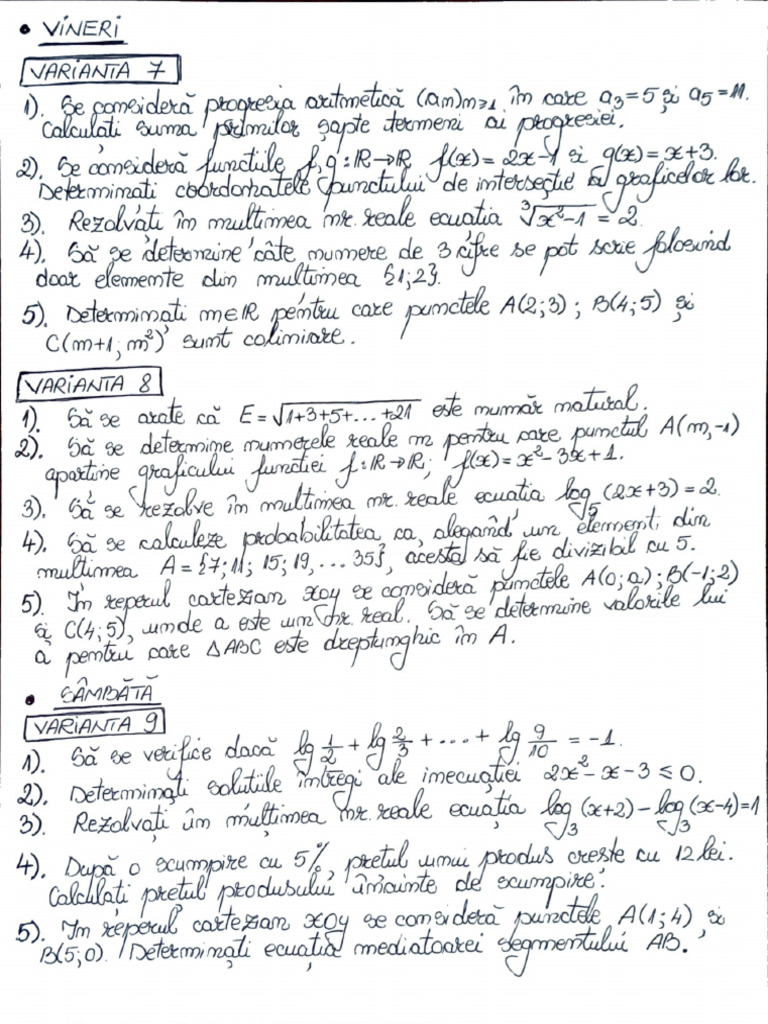 • VINERI
VARIANTA 7
1). Se consideră progresia aritmetică (am)m≥1 în care a₃=5 și a₅=11.
Calculati suma primilor șapte termeni ai progresiei.
2). Se consideră funcțiile f,g:ℝ→ℝ f(x)=2x-1 și g(x)=x+3.
Determinati coordonatele punctului de intersecție a graficelor lor.
3). Rezolvati în multimea nr. reale ecuatia ∛(x²-1) = 2
4). Să se determine câte numere de 3 cifre se pot scrie folosind
doar elemente din multimea {1;2}.
5). Determinati m∈ℝ pentru care punctele A(2;3); B(4;5) și
C(m+1; m²) sunt coliniare.
VARIANTA 8
1). Să se arate că E=√(1+3+5+...+21) este număr natural.
2). Să se determine numerele reale m pentru care punctul A(m,-1)
apartine graficului functiei f:ℝ→ℝ; f(x)=x²-3x+1.
3). Să se rezolve în multimea nr. reale ecuatia log₅(2x+3)=2.
4). Să se calculeze probabilitatea ca, alegând un element din
multimea A={7; 11; 15; 19, ... 35}, acesta să fie divizibil cu 5.
5). În reperul cartezian xoy se consideră punctele A(0;a); B(-1;2)
și C(4;5), unde a este un nr. real. Să se determine valorile lui
a pentru care △ABC este dreptunghic în A.
• SÂMBĂTĂ
VARIANTA 9
1). Să se verifice dacă lg 1/2 + lg 2/3 + ... + lg 9/10 = -1.
2). Determinați solutiile întregi ale inecuației 2x²-x-3≤0.
3). Rezolvați în mulțimea nr. reale ecuația log₃(x+2)-log₃(x-4)=1
4). După o scumpire cu 5%, pretul unui produs creste cu 12 lei.
Calculati pretul produsului înainte de scumpire.
5). În reperul cartezian xoy se consideră punctele A(1;4) și
B(5;0). Determinați ecuația mediatoarei segmentului AB.